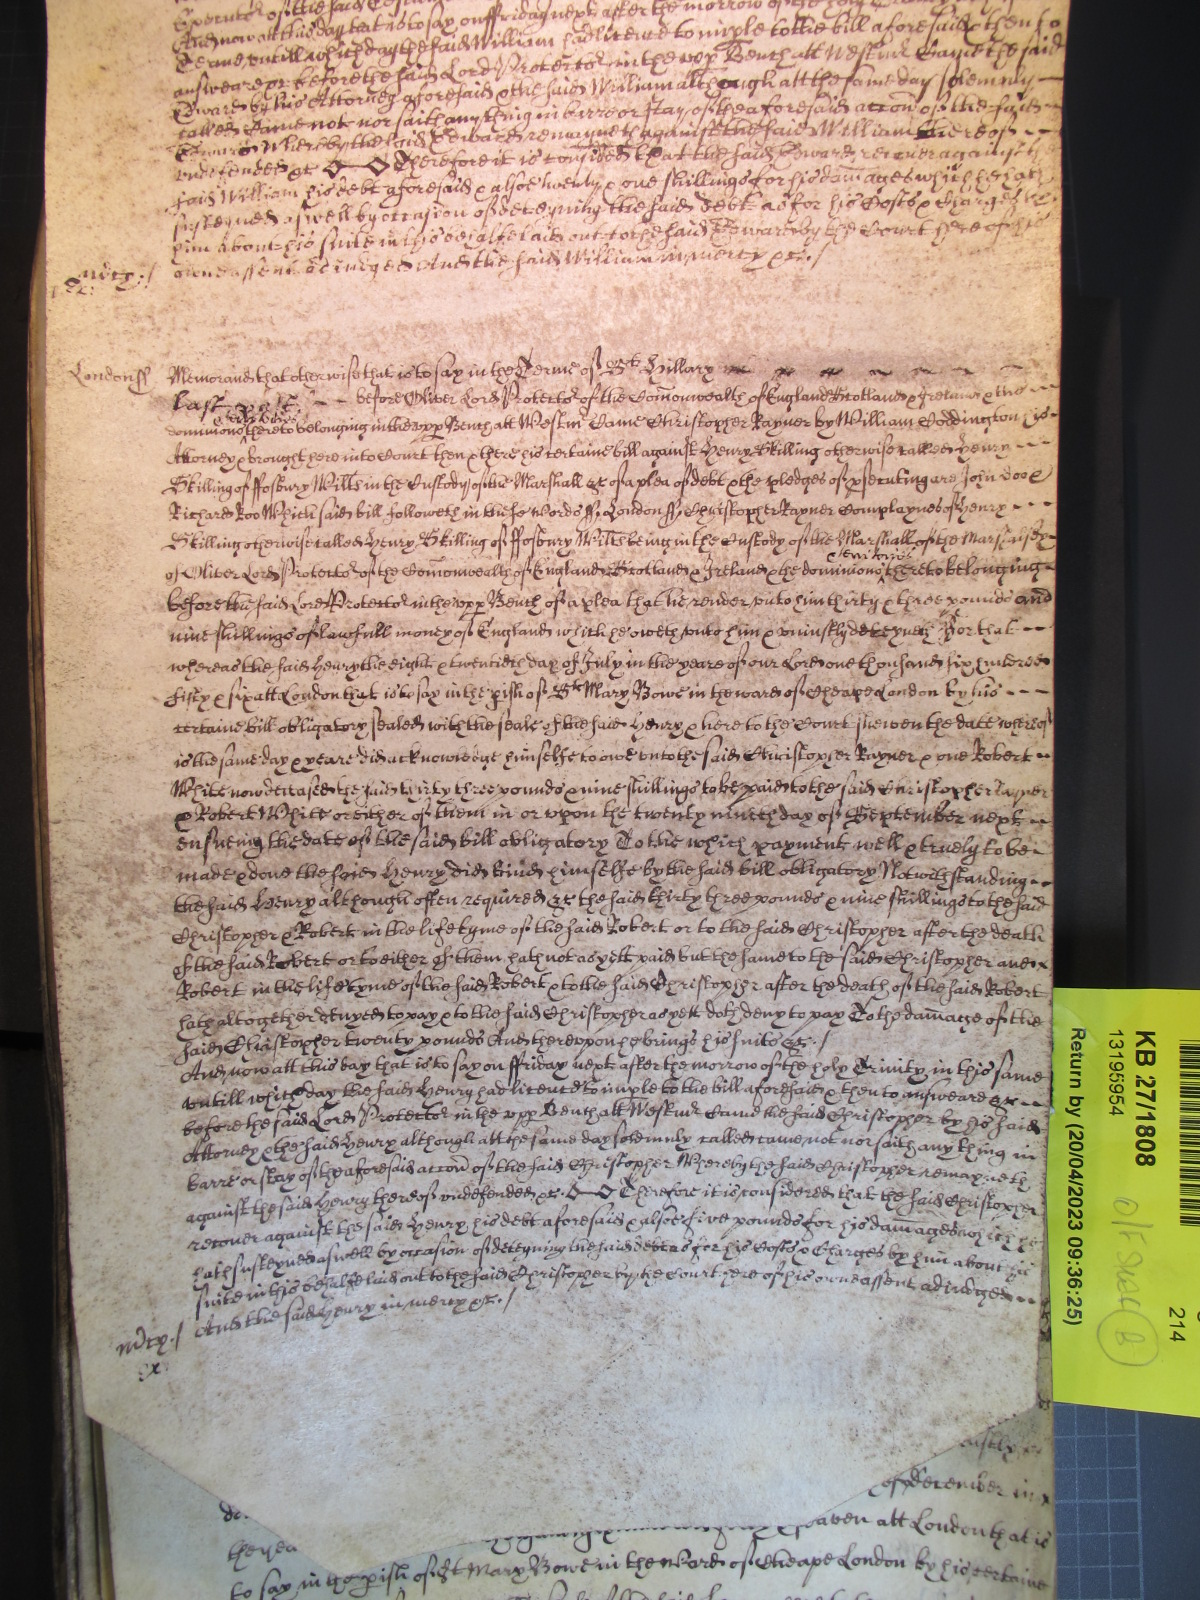 And now att this day that is to say on ffriday next after the morrow of the holy
Terme untill which day the said William had licence to imple to the bill aforesaid & then to
answeare &c before the said Lord Protector in the upp Bench att Westmr Came the said
Edward by his Attorney aforesaid & the said William although att the same day solemnly
called Came not nor saith any thing in barre or stay of the aforesaid accon of the said
Edward Whereby the said Edward remayneth against the said William thereof
undefended &c Therefore it is considered that the said Edward recover against the
said William his debt aforesaid & alsoe twenty & one shillings for his damages which he hath
susteyned aswell by occasion of deteyning the said debt as for his Costs & Charges by
him about his suite in this behalfe laid out to the said Edward by the Court here of his
owne assent adiudged And the said William in mercy &c./
mercy./
London ss
Memorand that otherwise that is to say in the Terme of St Hillary
last past before Oliver Lord Protector of the Comonwealth of England Scotland & Ireland & the
territories
dominions thereto belonging in the upp Bench att Westm Came Christopher Rayner by William Coddington his
Attorney & brought here into Court then & there his certaine bill against Henry Skilling otherwise called Henry
Skilling of ffosbury Wilts in the Custody of the Marshall &c of a plea of debt & the pledges of psecuting are John Doo &
Richard Roo Which said bill followeth in these words ss London ss Christopher Rayner Complaynes of Henry
Skilling otherwise called Henry Skilling of ffosbury Wilts being in the Custody of the Marshall of the Marshalsey
territories
of Oliver Lord Protector of the Comonwealth of England Scotland & Ireland & the dominions thereto belonging
before the said Lord Protector in the upp Bench of a plea that he render unto him thirty & three pounds and
nine shillings of lawfull money of England which he oweth unto him & uniustly deteyneth For that
whereas the said Henry the eight & twentieth day of July in the yeare of our Lord one thousand six hundred
fifty & six att London that is to say in the pish of St Mary Bowe in the ward of Cheape London by his
certaine bill obligatory sealed with the seale of the said Henry & here to the Court shewen the date whereof
is the same day & yeare did acknowledge himselfe to owe unto the said Christopher Rayner & one Robert
White now deceased the said thirty three pounds & nine shillings to be paid to the said Christopher Rayner
& Robert White or either of them in or upon the twenty nineth day of September next
ensueing the date of the said bill obligatory To the which payment well & truely to be
made & done the said Henry did bind himselfe by the said bill obligatory Notwithstanding
the said Henry although often required &c the said thirty three pounds & nine shillings to the said
Christopher & Robert in the life tyme of the said Robert or to the said Christopher after the death
of the said Robert or to either of them hath not as yett paid but the same to the said Christopher and
Robert in the life tyme of the said Robert & to the said Christopher after the death of the said Robert
hath altogether denyed to pay & to the said Christopher as yett doth deny to pay To the damage of the
said Christopher twenty pounds And thereupon he brings his suite &c./
And now att this day that is to say on ffriday next after the morrow of the holy Trinity in this same
untill which day the said Henry had licence to imple to the bill aforesaid & then to answeare &c
before the said Lord Protector in the upp Bench att Westmr Came the said Christopher by his said
Attorney & the said Henry although att the same day solemnly called came not nor saith any thing in
barre or stay of the aforesaid accon of the said Christopher Whereby the said Christopher remayneth
against the said Henry thereof undefended &c. Therefore it is considered that the said Christopher
recover against the said Henry his debt aforesaid & alsoe five pounds for his damages which he
hath susteyned aswell by occasion of deteyning the said debt as for his Costs & Charges by him about his
suite in this behalfe laid out to the said Christopher by the Court here of his owne assent adiudged
And the said Henry in mercy &c./
mercy./
of December in
the yea att London that is
to say in the pish of St Mary Bowe in the Ward of Cheape London by his certaine
KB 27/1808
13195954
Return by (20/04/2023 09:36:25)
214